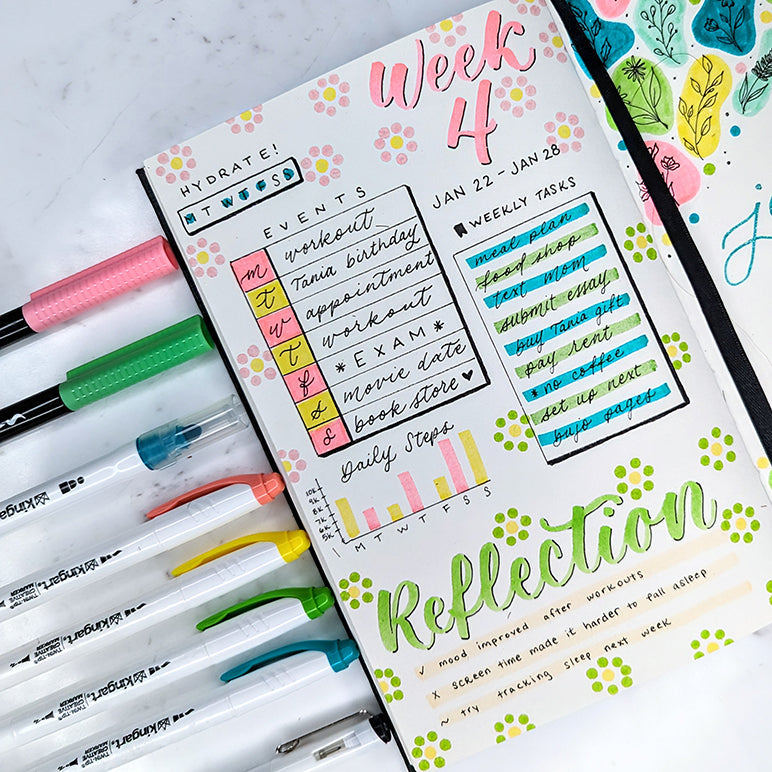 Week
4
JAN 22 - JAN 28
HYDRATE!
M T W T F S S
EVENTS
m workout
t Tania birthday
w appointment
t workout
f *EXAM*
s movie date
s book store ♥
WEEKLY TASKS
meal plan
food shop
text mom
submit essay
buy Tania gift
pay rent
* no coffee
set up next
bujo pages
Daily Steps
10K
9K
8K
7K
6K
5K
M T W T F S S
Reflection
✓ mood improved after workouts
x screen time made it harder to fall asleep
~ try tracking sleep next week
kingart.
TWIN-TIP™
CREATIVE
MARKER
kingart.
TWIN-TIP™
CREATIVE
MARKER
kingart.
TWIN-TIP™
CREATIVE
MARKER
kingart.
TWIN-TIP™
CREATIVE
MARKER
kingart.